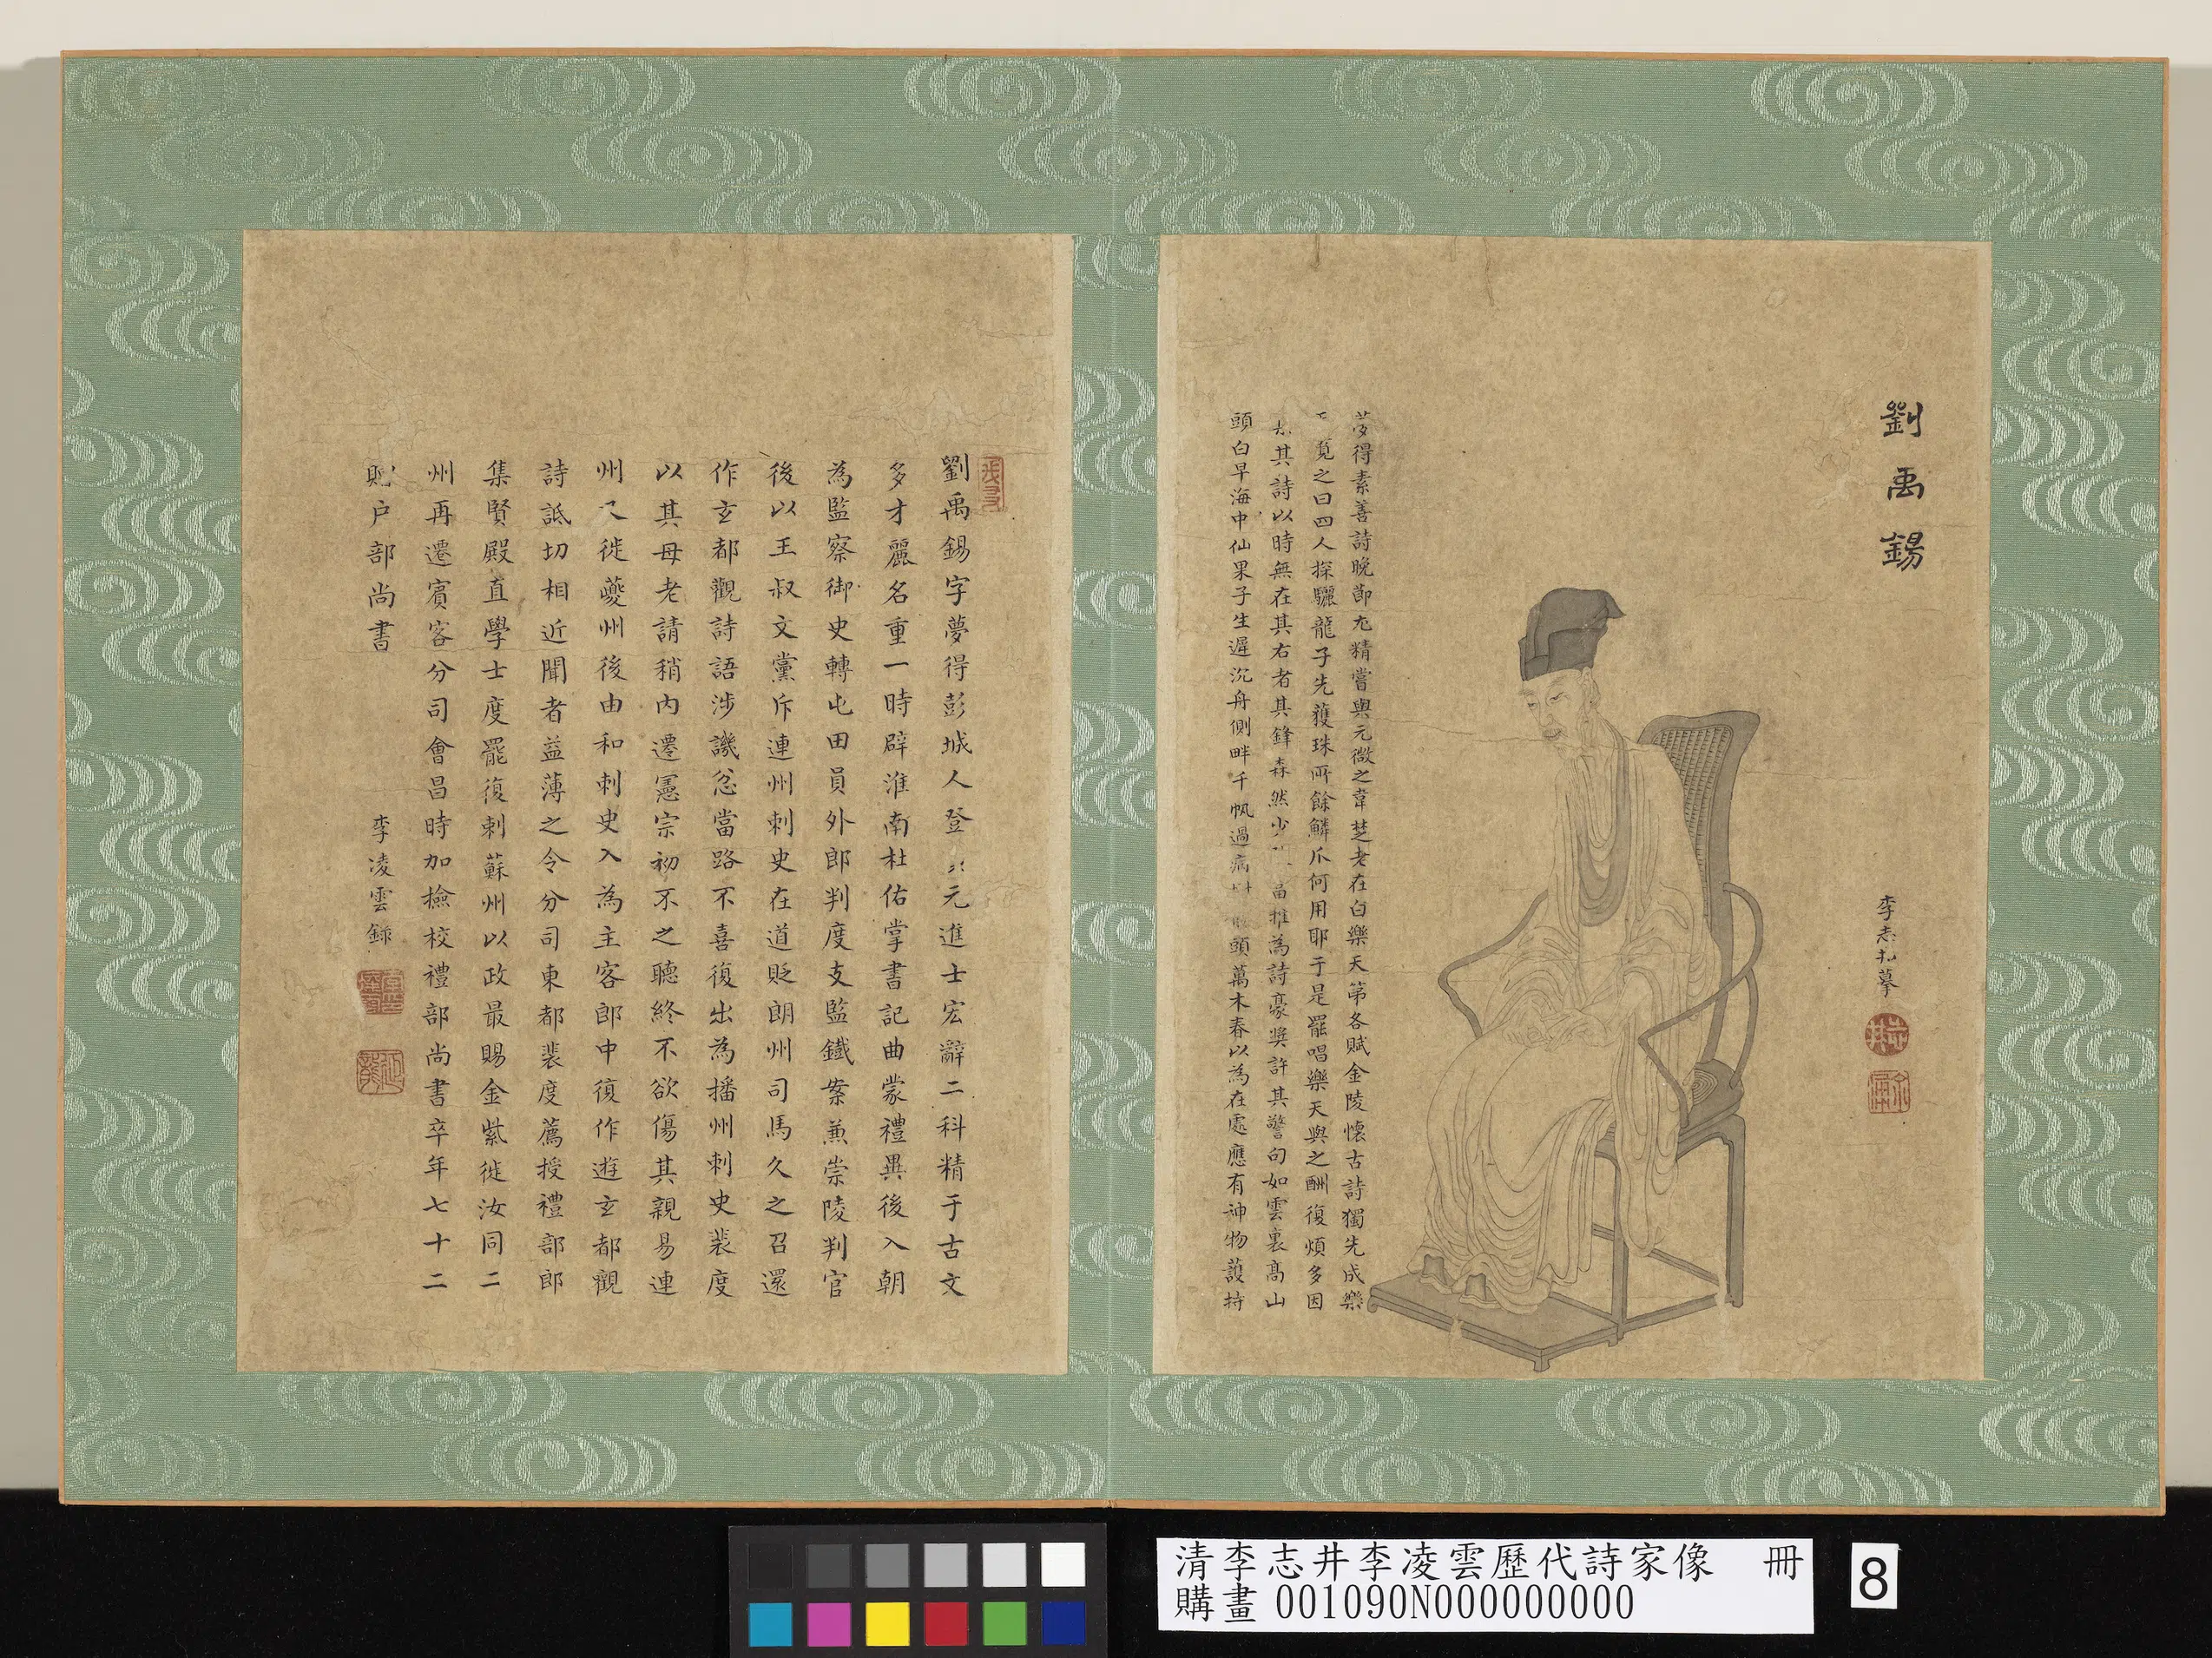 劉禹錫
李志井摹
夢得素善詩晚節尤精嘗與元微之韋楚老在白樂天第各賦金陵懷古詩獨先成樂
覽之曰四人探驪龍子先獲珠所餘鱗爪何用耶于是罷唱樂天與之酬復煩多因
其詩以時無在其右者其鋒森然少當推為詩豪獎許其警句如雲裏高山
頭白早海中仙果子生遲沉舟側畔千帆過病頭萬木春以為在處應有神物護持
劉禹錫字夢得彭城人登元進士宏辭二科精于古文
多才麗名重一時辟淮南杜佑掌書記曲蒙禮異後入朝
為監察御史轉屯田員外郎判度支監鐵案兼崇陵判官
後以王叔文黨斥連州刺史在道貶朗州司馬久之召還
作玄都觀詩語涉譏忿當路不喜復出為播州刺史裴度
以其母老請稍內遷憲宗初不之聽終不欲傷其親易連
州又徙夔州後由和刺史入為主客郎中復作遊玄都觀
詩詆切相近聞者益薄之令分司東都裴度薦授禮部郎
集賢殿直學士度罷復刺蘇州以政最賜金紫徙汝同二
州再遷賓客分司會昌時加檢校禮部尚書卒年七十二
贈户部尚書
李凌雲錄
清李志井李凌雲歷代詩家像 冊
購畫 001090N000000000
8